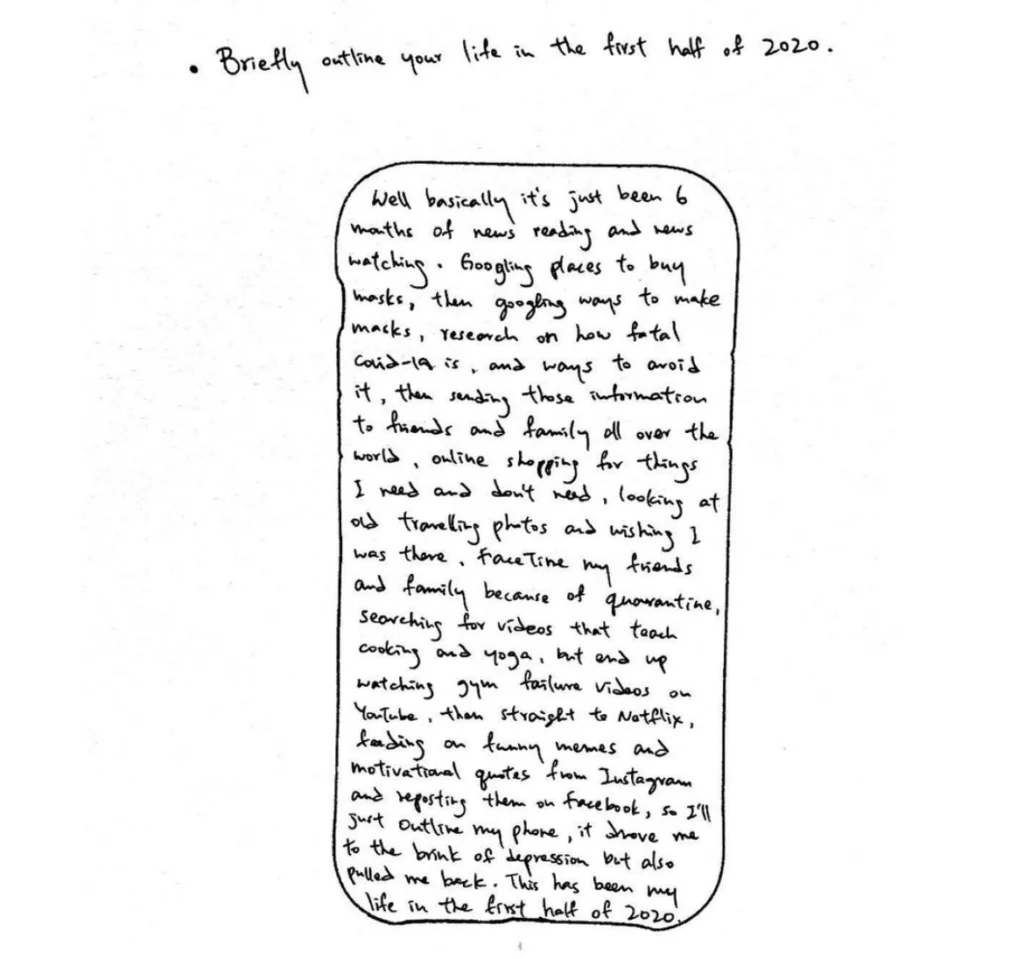 • Briefly outline your life in the first half of 2020.
Well basically it's just been 6
months of news reading and news
watching. Googling places to buy
masks, then googling ways to make
masks, research on how fatal
Covid-19 is, and ways to avoid
it, then sending those information
to friends and family all over the
world, online shopping for things
I need and don't need, looking at
old travelling photos and wishing I
was there, FaceTime my friends
and family because of quarantine,
searching for videos that teach
cooking and yoga, but end up
watching gym failure videos on
YouTube, then straight to Netflix,
feeding on funny memes and
motivational quotes from Instagram
and reposting them on facebook, so I'll
just outline my phone, it drove me
to the brink of depression but also
pulled me back. This has been my
life in the first half of 2020.